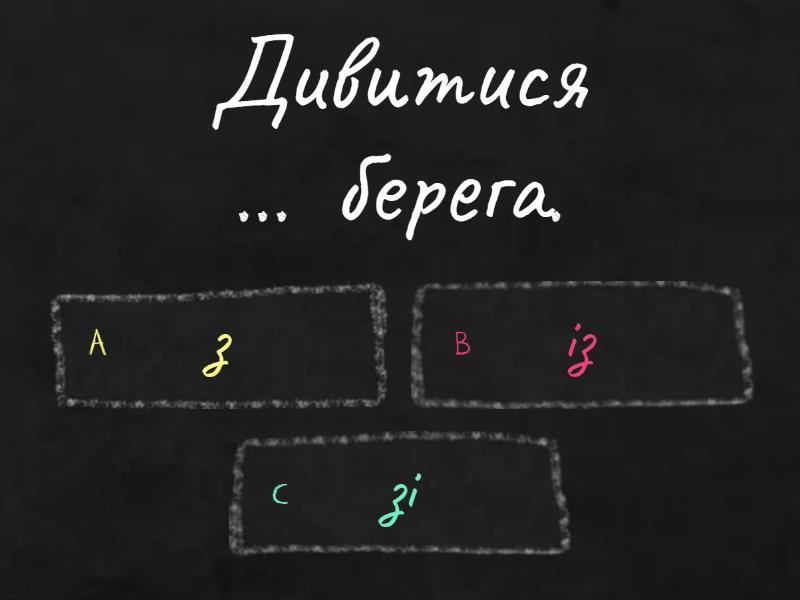 Дивитися
... берега.
A з
B із
C зі